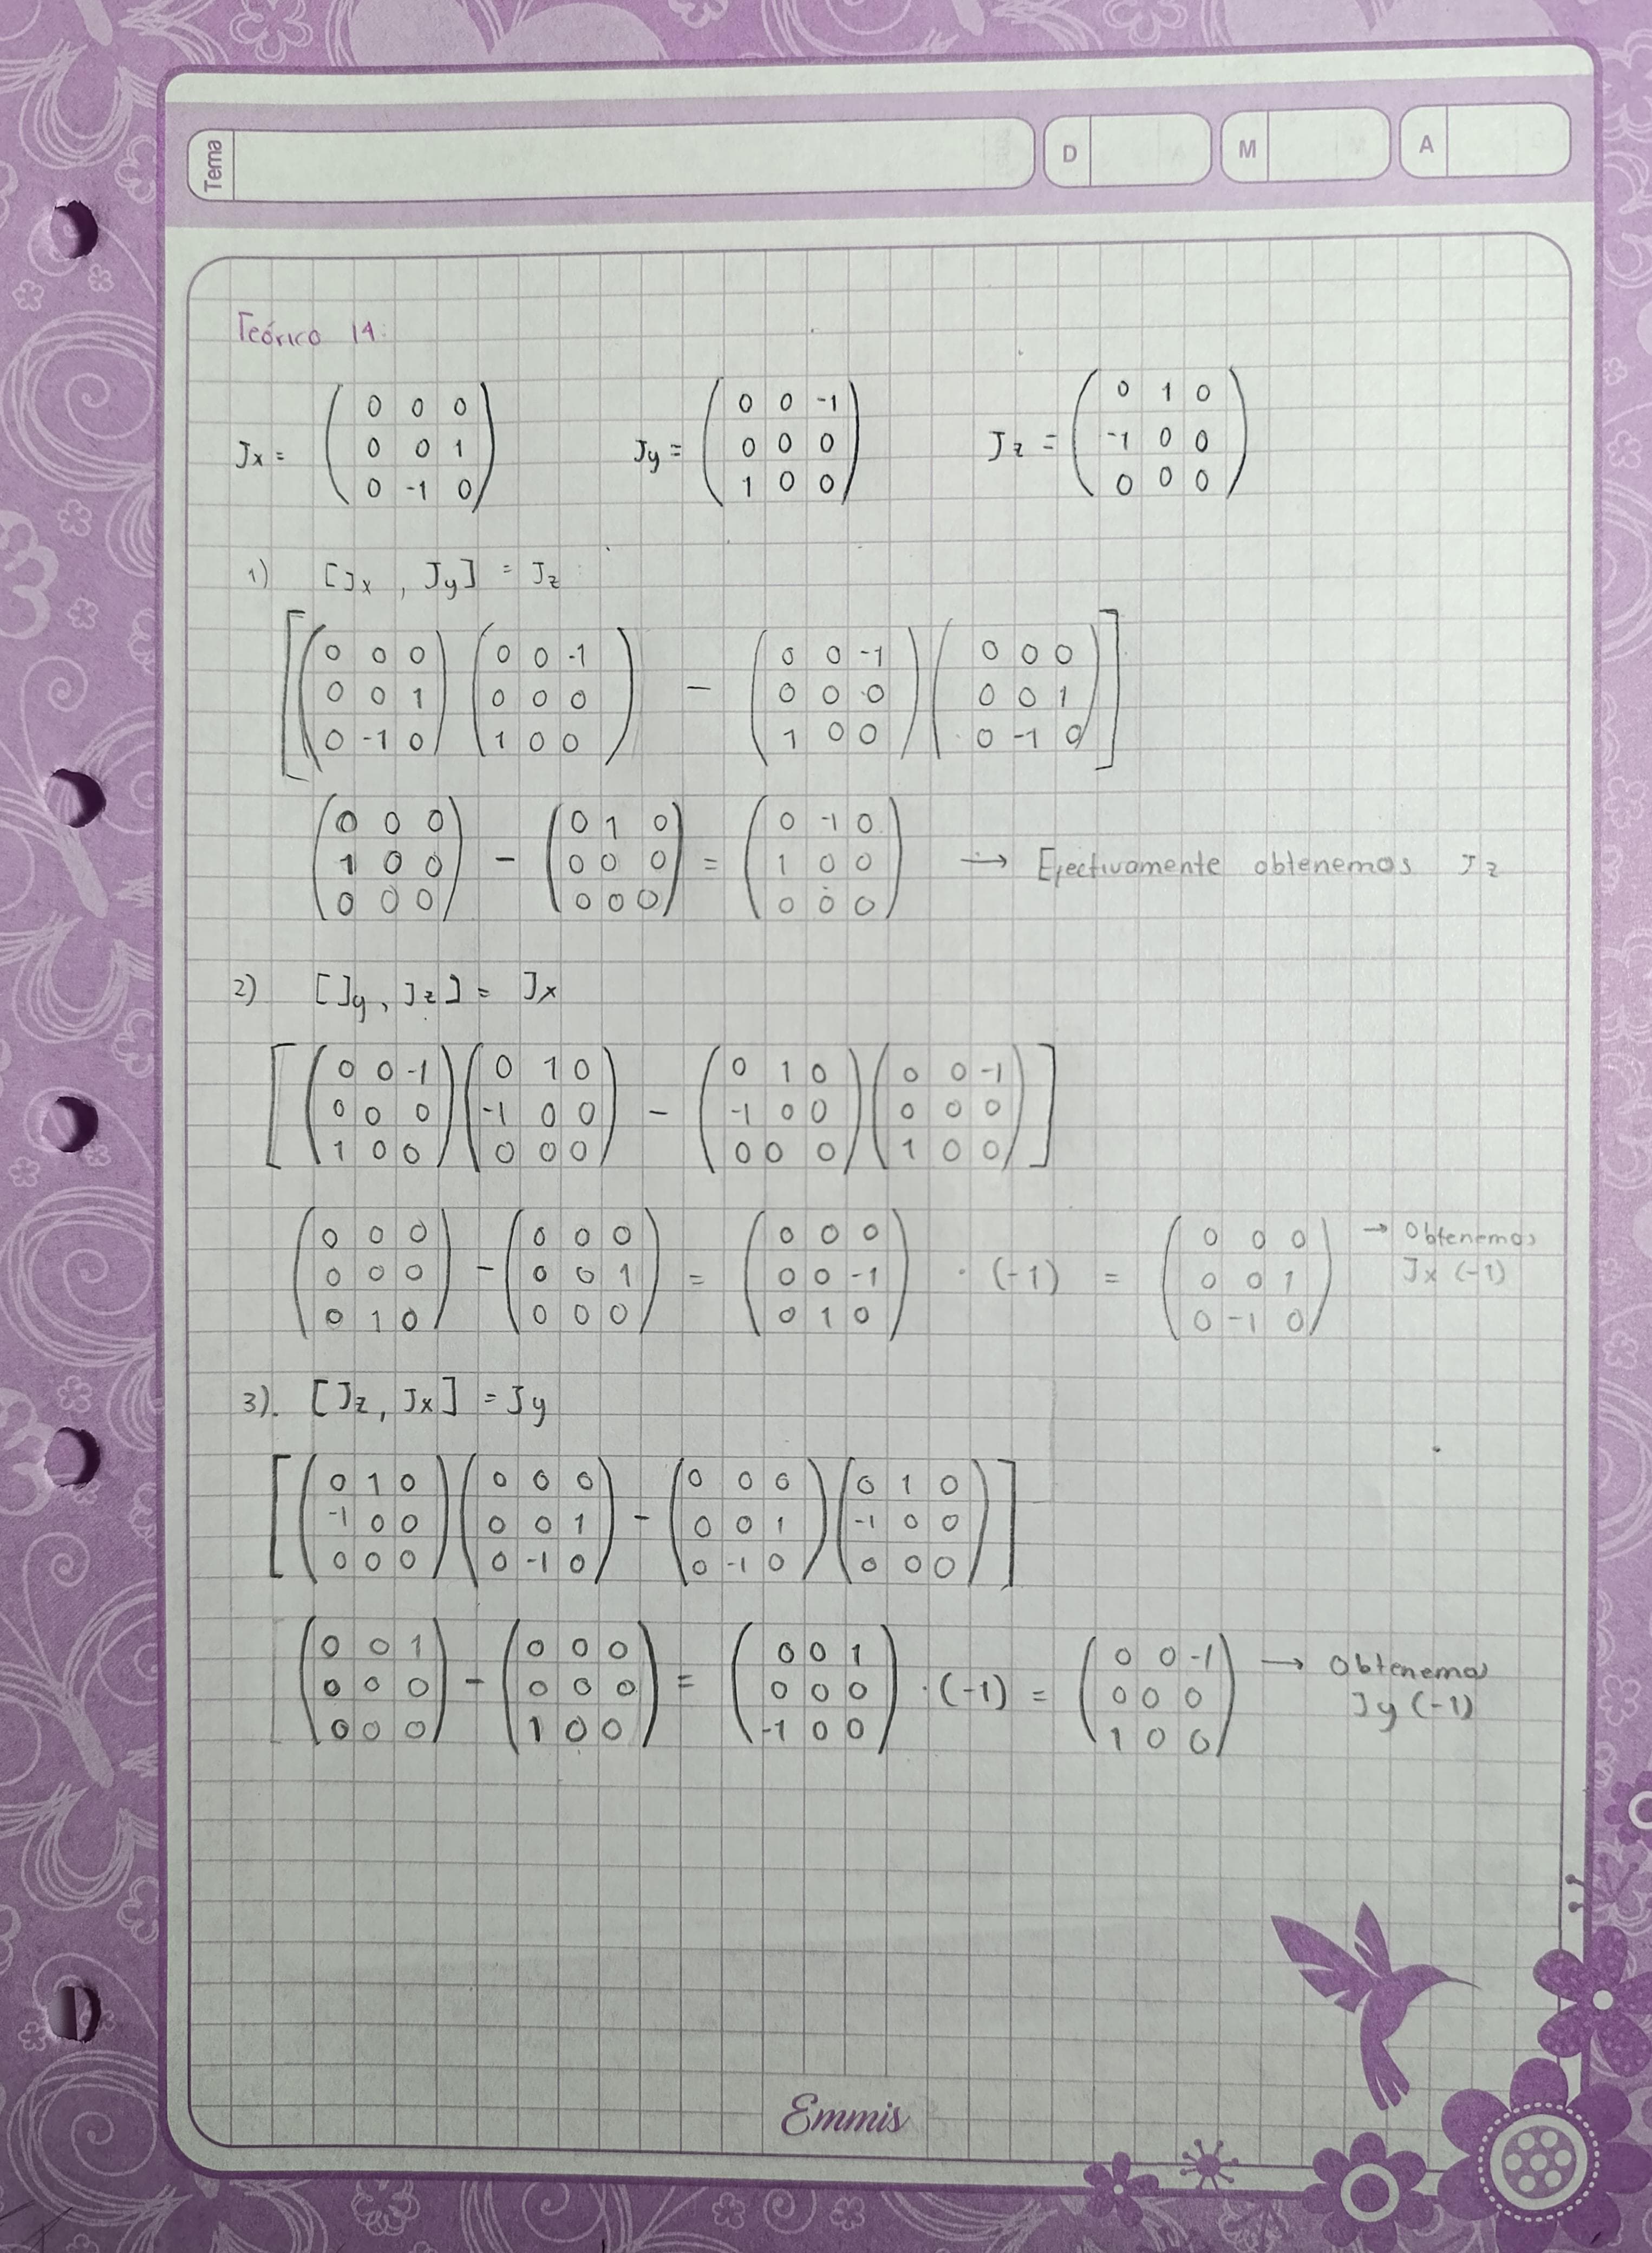 Tema D M A
Teórico 14:
Jx = ( 0 0 0 ; 0 0 1 ; 0 -1 0 ) Jy = ( 0 0 -1 ; 0 0 0 ; 1 0 0 ) Jz = ( 0 1 0 ; -1 0 0 ; 0 0 0 )
1) [Jx , Jy] = Jz :
[ ( 0 0 0 ; 0 0 1 ; 0 -1 0 ) ( 0 0 -1 ; 0 0 0 ; 1 0 0 ) - ( 0 0 -1 ; 0 0 0 ; 1 0 0 ) ( 0 0 0 ; 0 0 1 ; 0 -1 0 ) ]
( 0 0 0 ; 1 0 0 ; 0 0 0 ) - ( 0 1 0 ; 0 0 0 ; 0 0 0 ) = ( 0 -1 0 ; 1 0 0 ; 0 0 0 ) → Efectivamente obtenemos Jz
2) [Jy , Jz] = Jx
[ ( 0 0 -1 ; 0 0 0 ; 1 0 0 ) ( 0 1 0 ; -1 0 0 ; 0 0 0 ) - ( 0 1 0 ; -1 0 0 ; 0 0 0 ) ( 0 0 -1 ; 0 0 0 ; 1 0 0 ) ]
( 0 0 0 ; 0 0 0 ; 0 1 0 ) - ( 0 0 0 ; 0 0 1 ; 0 0 0 ) = ( 0 0 0 ; 0 0 -1 ; 0 1 0 ) · (-1) = ( 0 0 0 ; 0 0 1 ; 0 -1 0 ) → Obtenemos
Jx (-1)
3). [Jz, Jx] = Jy
[ ( 0 1 0 ; -1 0 0 ; 0 0 0 ) ( 0 0 0 ; 0 0 1 ; 0 -1 0 ) - ( 0 0 0 ; 0 0 1 ; 0 -1 0 ) ( 0 1 0 ; -1 0 0 ; 0 0 0 ) ]
( 0 0 1 ; 0 0 0 ; 0 0 0 ) - ( 0 0 0 ; 0 0 0 ; 1 0 0 ) = ( 0 0 1 ; 0 0 0 ; -1 0 0 ) · (-1) = ( 0 0 -1 ; 0 0 0 ; 1 0 0 ) → Obtenemos
Jy (-1)
Emmis